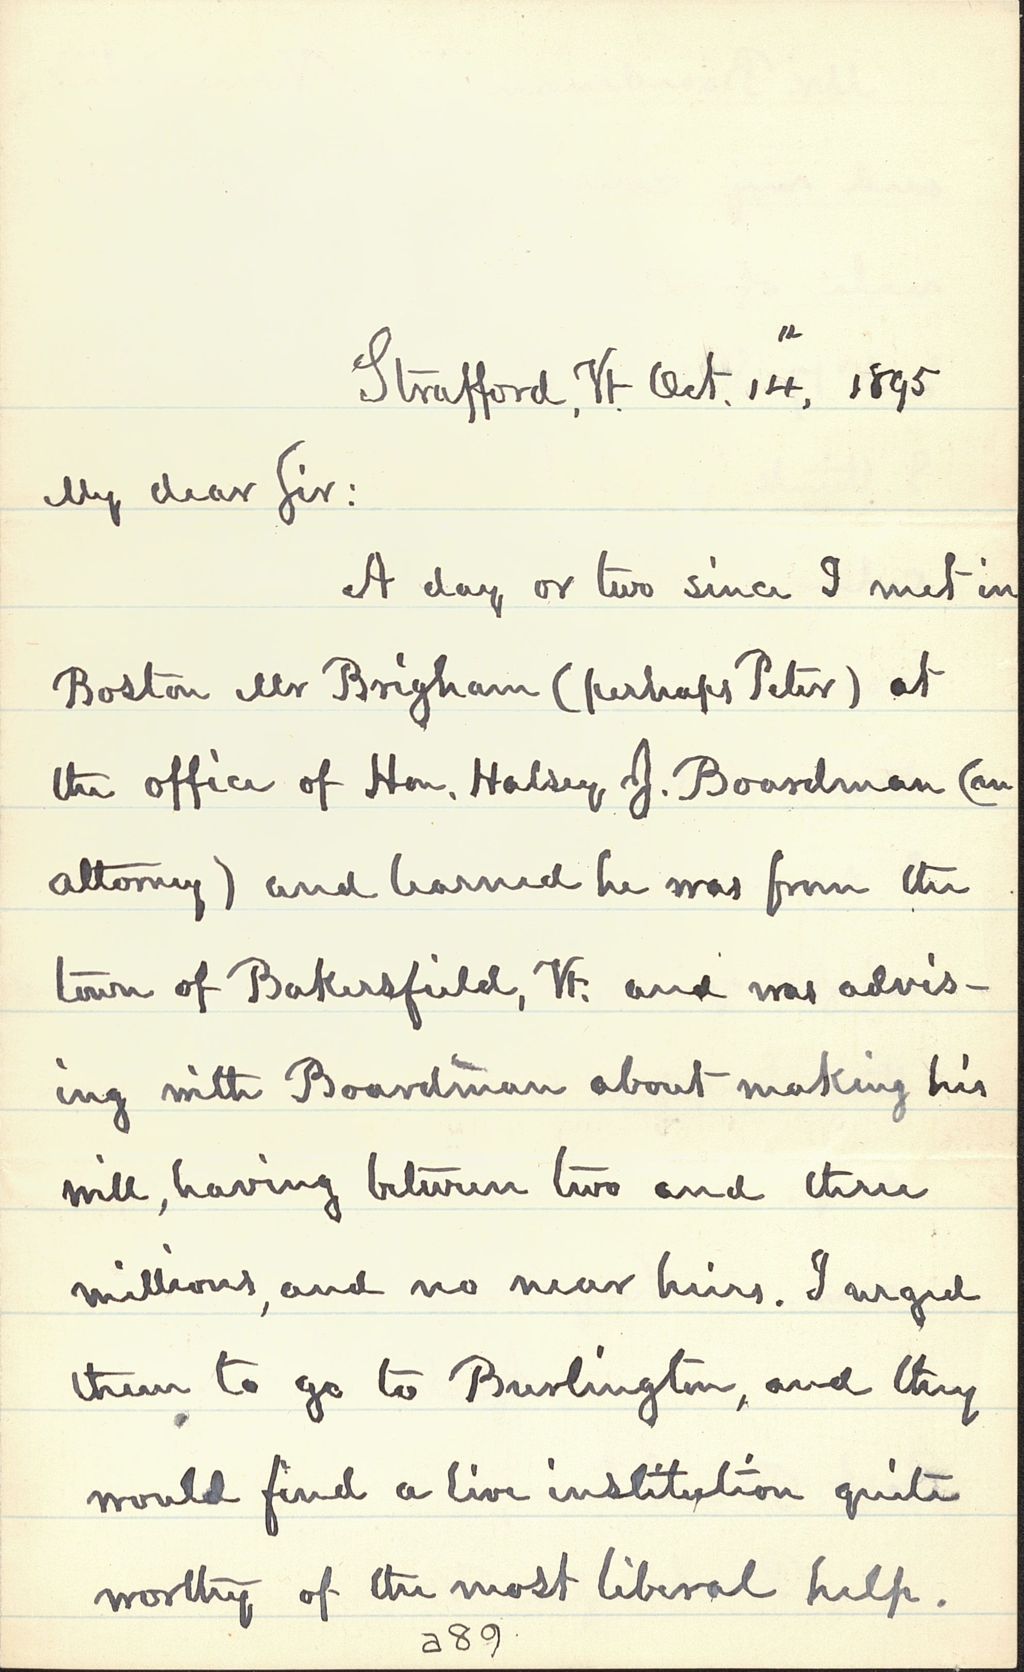 Strafford, Vt. Oct. 14th, 1895
My dear Sir:
A day or two since I met in
Boston Mr Brigham (perhaps Peter) at
the office of Hon. Halsey J. Boardman (an
attorney) and learned he was from the
town of Bakersfield, Vt. and was advis-
ing with Boardman about making his
will, having between two and three
millions, and no near heirs. I urged
them to go to Burlington, and they
would find a live institution quite
worthy of the most liberal help.
a89